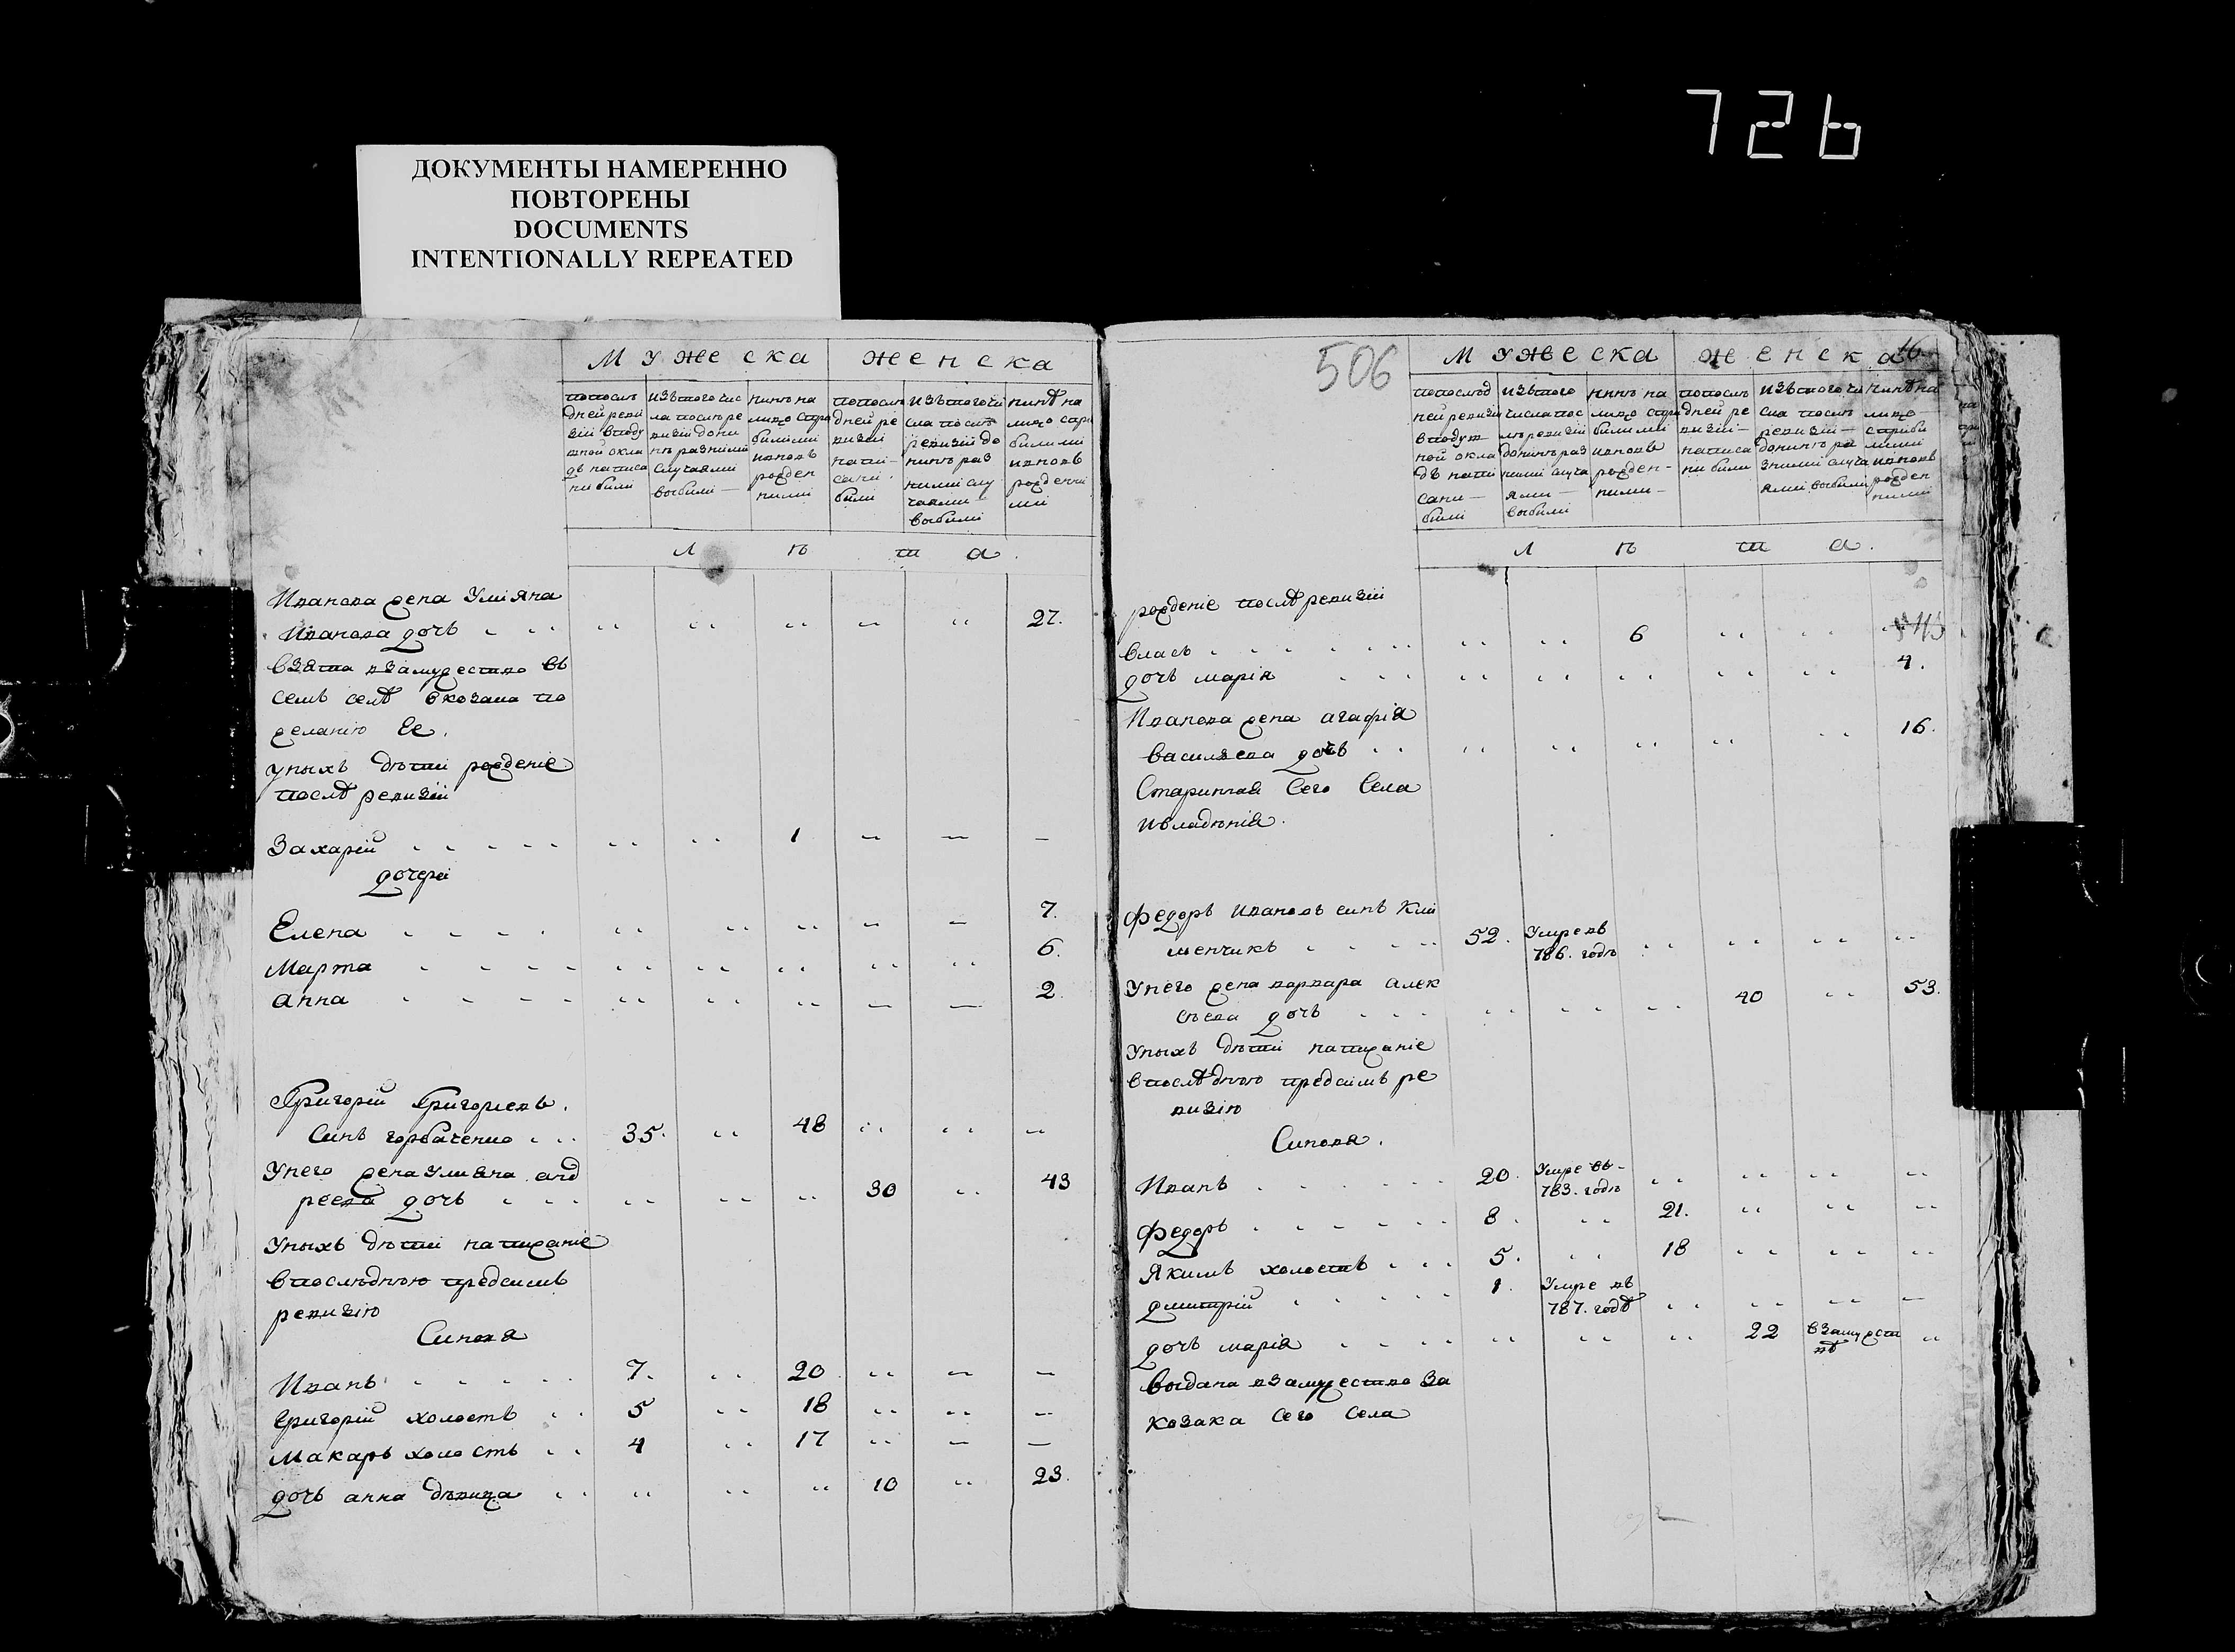 726
ДОКУМЕНТЫ НАМЕРЕННО
ПОВТОРЕНЫ
DOCUMENTS
INTENTIONALLY REPEATED
Мужеска женска
попослѣ дней ревизіи вподушной окладъ написаны были
изътого числа послѣ ревизіи донинѣ разними случаями выбили
нинѣ налицо старобилими ивновь рожденними
попослѣдней ревизіи написани были
изътого числа послѣ ревизіи донинѣ разними случаями выбили
нинѣ налицо старобилими ивновь рожденними
лѣта.
Иванова жена Уліяна
Иванова дочь 27.
взята взамужество въ
семъ селѣ вкозака по
желанію Ее.
унихъ дѣти рожденіе
послѣ ревизіи
Захарій 1
дочери
Елена 7.
Марта 6.
анна 2.
Григорій Григориевъ
Синъ горбаченко 35. 48
Унего жена улияна анд
реева дочь 30 43
Унихъ дѣти написаніе
впослѣднюю предсимъ
ревизію
Синовя
Иванъ 7. 20
Григорій холостъ 5 18
Макаръ холостъ 4 17
дочь анна дѣвица 10 23.
506
16
Мужеска женска
попослѣдней ревизіи вподушной окладъ написани били
изътого числа послѣ ревизіи донинѣ разними случаями выбили
нинѣ налицо старобилими ивновь рожденними
попослѣдней ревизіи написани били
изътого числа послѣ ревизіи донинѣ разними случаями выбили
нинѣ налицо старобилими ивновь рожденними
лѣта.
рожденіе послѣ ревизіи
власъ 6
дочь марія 4.
Иванова жена агафія
василева дочь 16.
Старинная Сего Села
ивладѣнія.
федоръ ивановъ синъ Кли
менчикъ 52. Умре въ 786. годѣ
Унего жена варвара алек
сѣева дочь 40 53.
Унихъ дѣти написаніе
впослѣднюю предсимъ ре
визію
Синовя.
Иванъ 20. Умре въ 783. годѣ
федоръ 8. 21.
Якимъ холостъ 5. 18
дмитрій 1. Умре въ 787. годѣ
дочь марія 22 взамужествѣ
выдана взамужество за
козака Сего Села